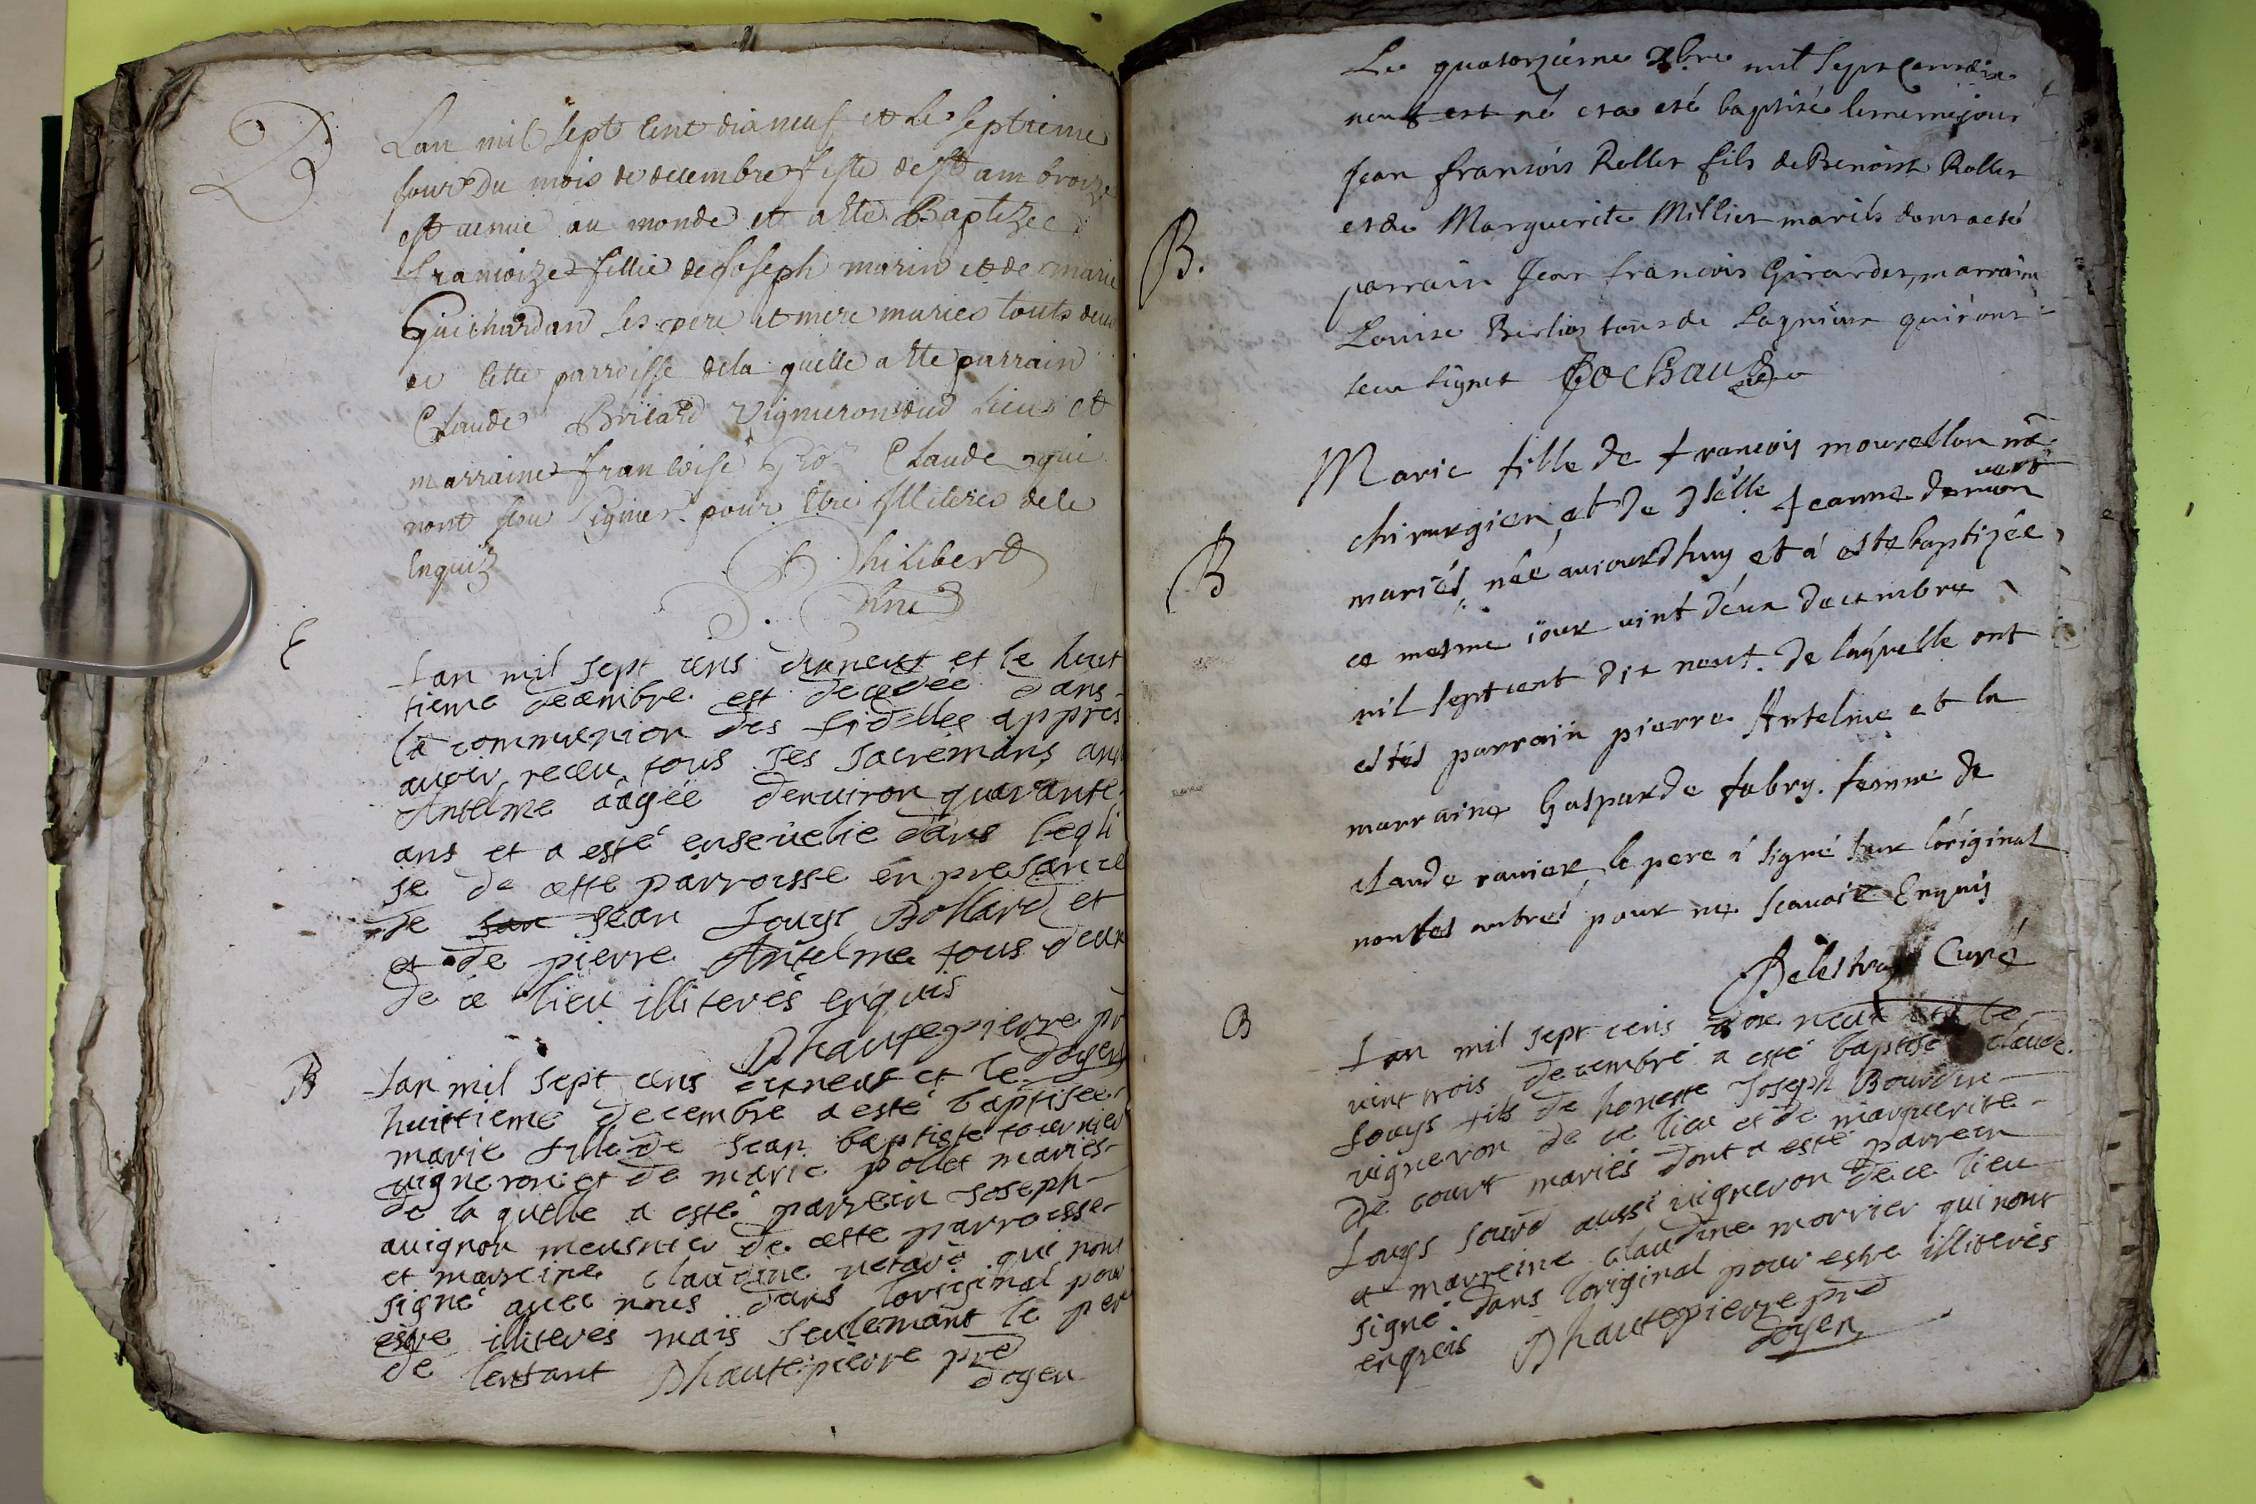 B
Lan mil sept Cent dixneuf et Le septieme
jour du mois de decembre feste de st ambroize
est venue au monde et a ete Baptizée
francoize fillie de Joseph marin et de marie
Guichardan ses pere et mere mariés touts deux
de Cette parroisse de la quelle a ete parrain
Claude Brilard Vigneron dud Lieu et
marraine francoise Claude qui
nont sceu signer pour être illiteres de ce
Enquis
Philibert
E
Lan mil sept cens dixneuf et le huit
tieme decembre est decedée dans
la communion des fidelles appres
avoir receu tous ses sacremans
Antelme aâgée denviron quarante
ans et a esté ensevelie dans legli
se de cette parroisse en presance
de Jean Louys Bollard et
et de pierre Antelme tous deux
de ce lieu illiterés enquis
Dhautepierre pr
doyen
B
Lan mil sept cens dixneuf et le
huittieme decembre a esté baptisée
marie fille de Jean baptiste tournier
vigneron et de marie pollet mariés
de la quelle a esté parrein Joseph
avignon meusnier de cette parroisse
et marreine claudine qui nont
signé avec nous dans loriginal pour
estre illiteres mais seulemant le pere
de lenfant Dhautepierre pre
doyen
Le quatorzième xbre mil sept cens dix
neuf est né et a esté baptisé le meme jour
B.
Jean francois Rollet fils de Benoist Rollet
et de Marguerite Millier mariés dont a esté
parrain Jean francois Girardet, marraine
Louise Berlios tous de Lagnieux qui n'ont
sceu signer Cochaud
Marie fille de francois mourellon me
chirurgien, et de dslle Jeanne
B
mariés, née aujourdhuy et a esté baptizée
ce mesme iour vint deux decembre
mil sept cent dix neuf. de laquelle ont
estés parrain pierre Antelme et la
marraine Gasparde fabry. femme de
claude ravier, le pere a signé sur loriginal
non les autres pour ne scavoir Enquis
Curé
B
Lan mil sept cens dix neuf et le
vint trois decembre a esté baptisé claude
Louys fils de honeste Joseph Bourdin
vigneron de ce lieu et de marguerite
de court mariés dont a esté parrein
Louys sourd aussi vigneron de ce lieu
et marreine claudine morrier qui nont
signé dans loriginal pour estre illiterés
enqueis Dhautepierre pre
doyen